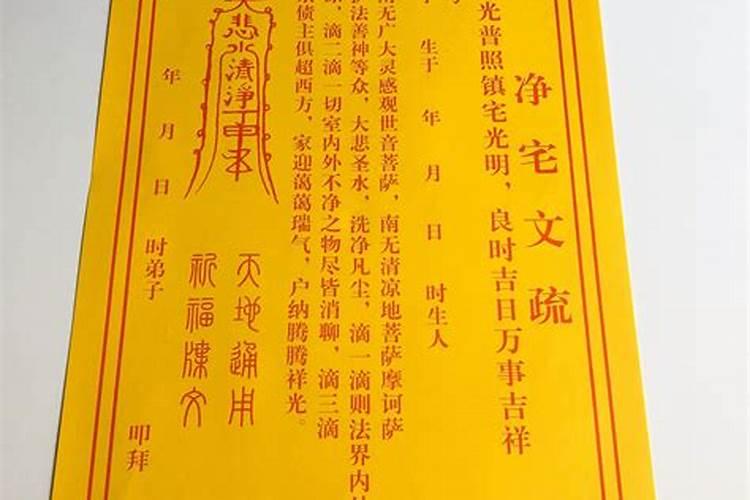 净宅文疏
光普照镇宅光明，良时吉日万事吉祥
生于 年 月 日 时生人
南无广大灵感观世音菩萨，南无清凉地菩萨摩诃萨
护法善神等众，大悲圣水，洗净凡尘，滴一滴则法界内
滴二滴一切室内外不净之物尽皆消聊，滴三滴
债主俱超西方，家迎蔼蔼瑞气，户纳腾腾祥光。
大悲水清淨
天地通用
祈福牒文
年 月 日 时弟子 叩拜